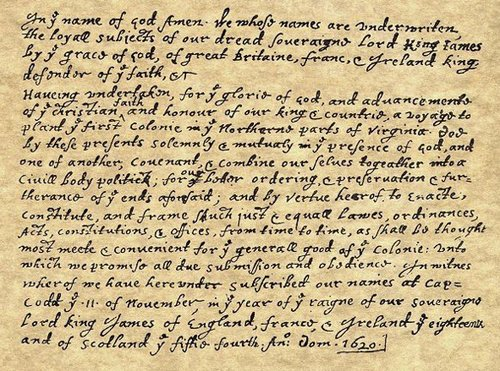 In yͤ name of God Amen· We whose names are underwriten,
the loyall subjects of our dread soveraigne Lord King James
by yͤ grace of God, of great Britaine, franc, & Ireland king,
defender of yͤ faith, &c
Haveing undertaken, for yͤ glorie of God, and advancemente
of yͤ christian faith and honour of our king & countrie, a voyage to
plant yͤ first colonie in yͤ Northerne parts of Virginia· doe
by these presents solemnly & mutualy in yͤ presence of God, and
one of another, covenant, & combine our selves togeather into a
civill body politick; for our better ordering, & preservation & fur-
therance of yͤ ends aforesaid; and by vertue hearof to enacte,
constitute, and frame shuch just & equall lawes, ordinances,
Acts, constitutions, & offices, from time to time, as shall be thought
most meete & convenient for yͤ generall good of yͤ Colonie: unto
which we promise all due submission and obedience. In witnes
wherof we have hereunder subscribed our names at Cap=
Codd yͤ ·11· of November, in yͤ year of yͤ raigne of our soveraigne
Lord king James of England, france, & Ireland yͤ eighteenth
and of Scotland yͤ fiftie fourth. An: Dom. 1620.